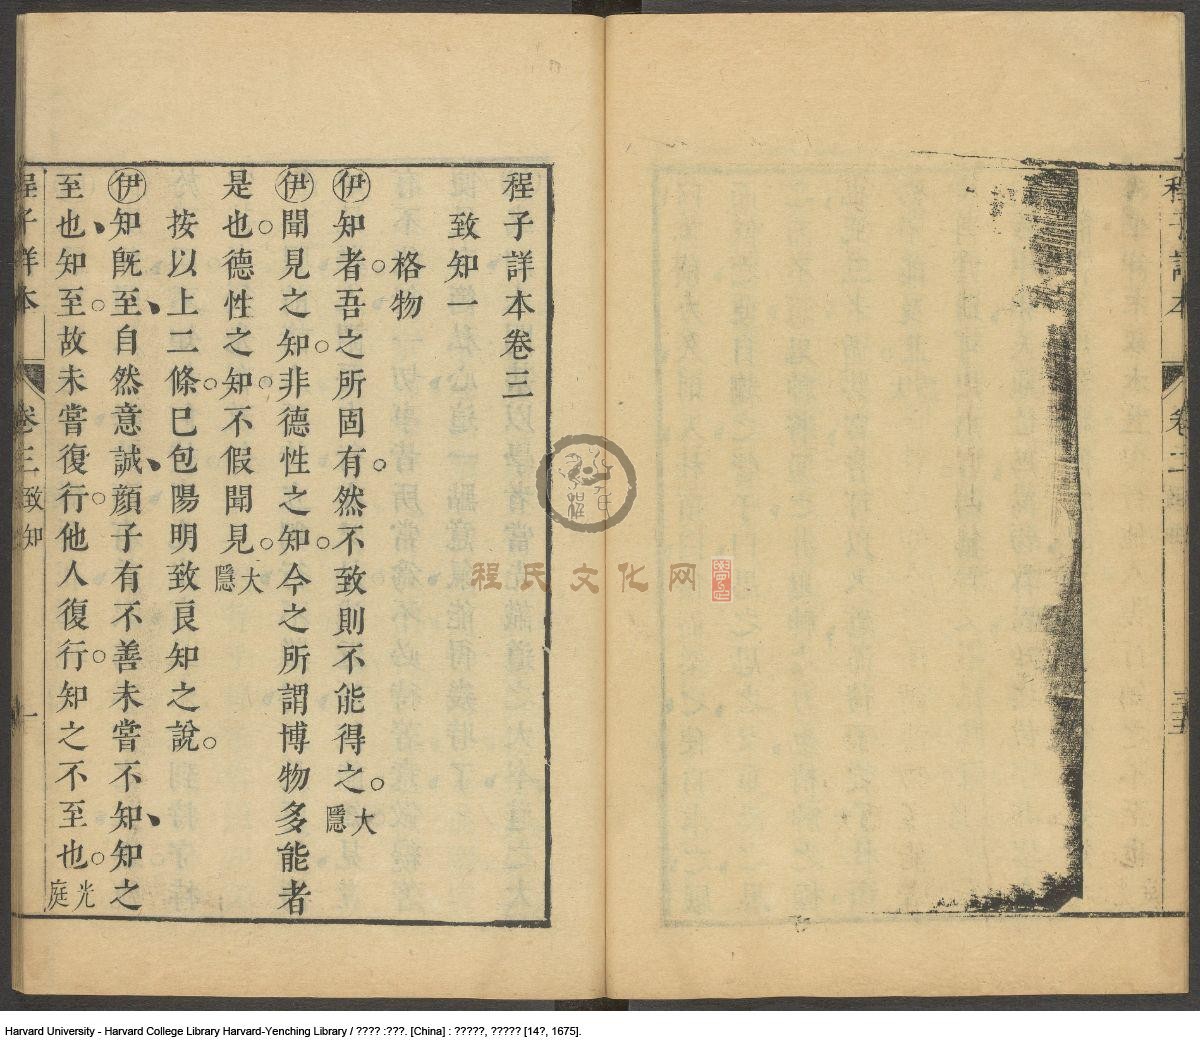 程子詳本卷三
致知一
格物
伊知者吾之所固有然不致則不能得之大隱
伊聞見之知非德性之知今之所謂博物多能者
是也德性之知不假聞見大隱
按以上二條已包陽明致良知之說
伊知旣至自然意誠顏子有不善未嘗不知知之
至也知至故未嘗復行他人復行知之不至也光庭
程子詳本 卷三 致知 一
程子詳本 卷二
程氏文化网
Harvard University - Harvard College Library Harvard-Yenching Library / ???? :???. [China] : ?????, ????? [14?, 1675].